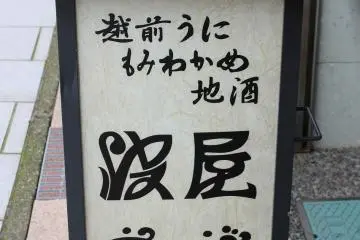 越前うに
もみわかめ
地酒
波屋